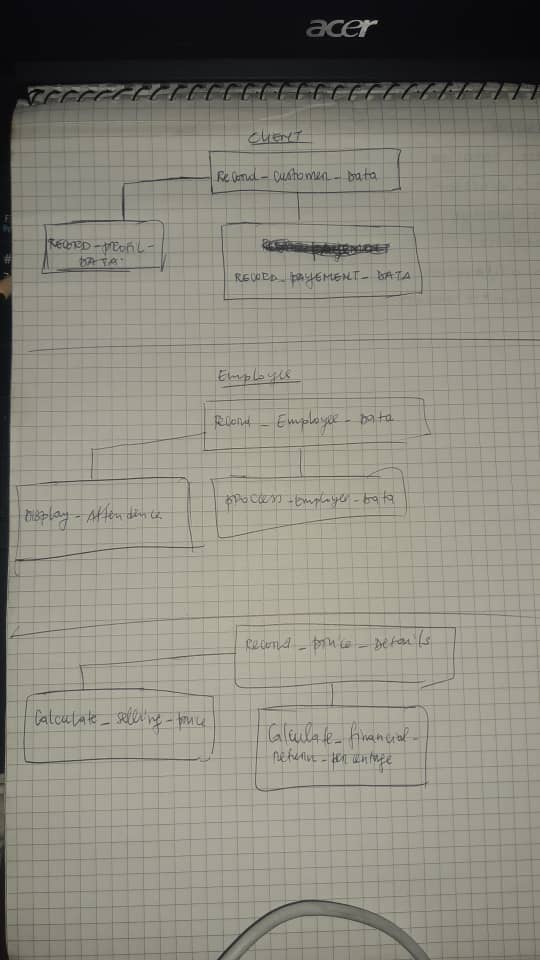 acer
CLIENT
Record-Customer-Data
RECORD-PEOPL-
DATA
RECORD-PAYEMENT-DATA
Employee
Record_Employee-Data
Display-Attendence
process-Employee-Data
Record_price_Details
Calculate_selling-price
Calculate_financial-
return-percentage